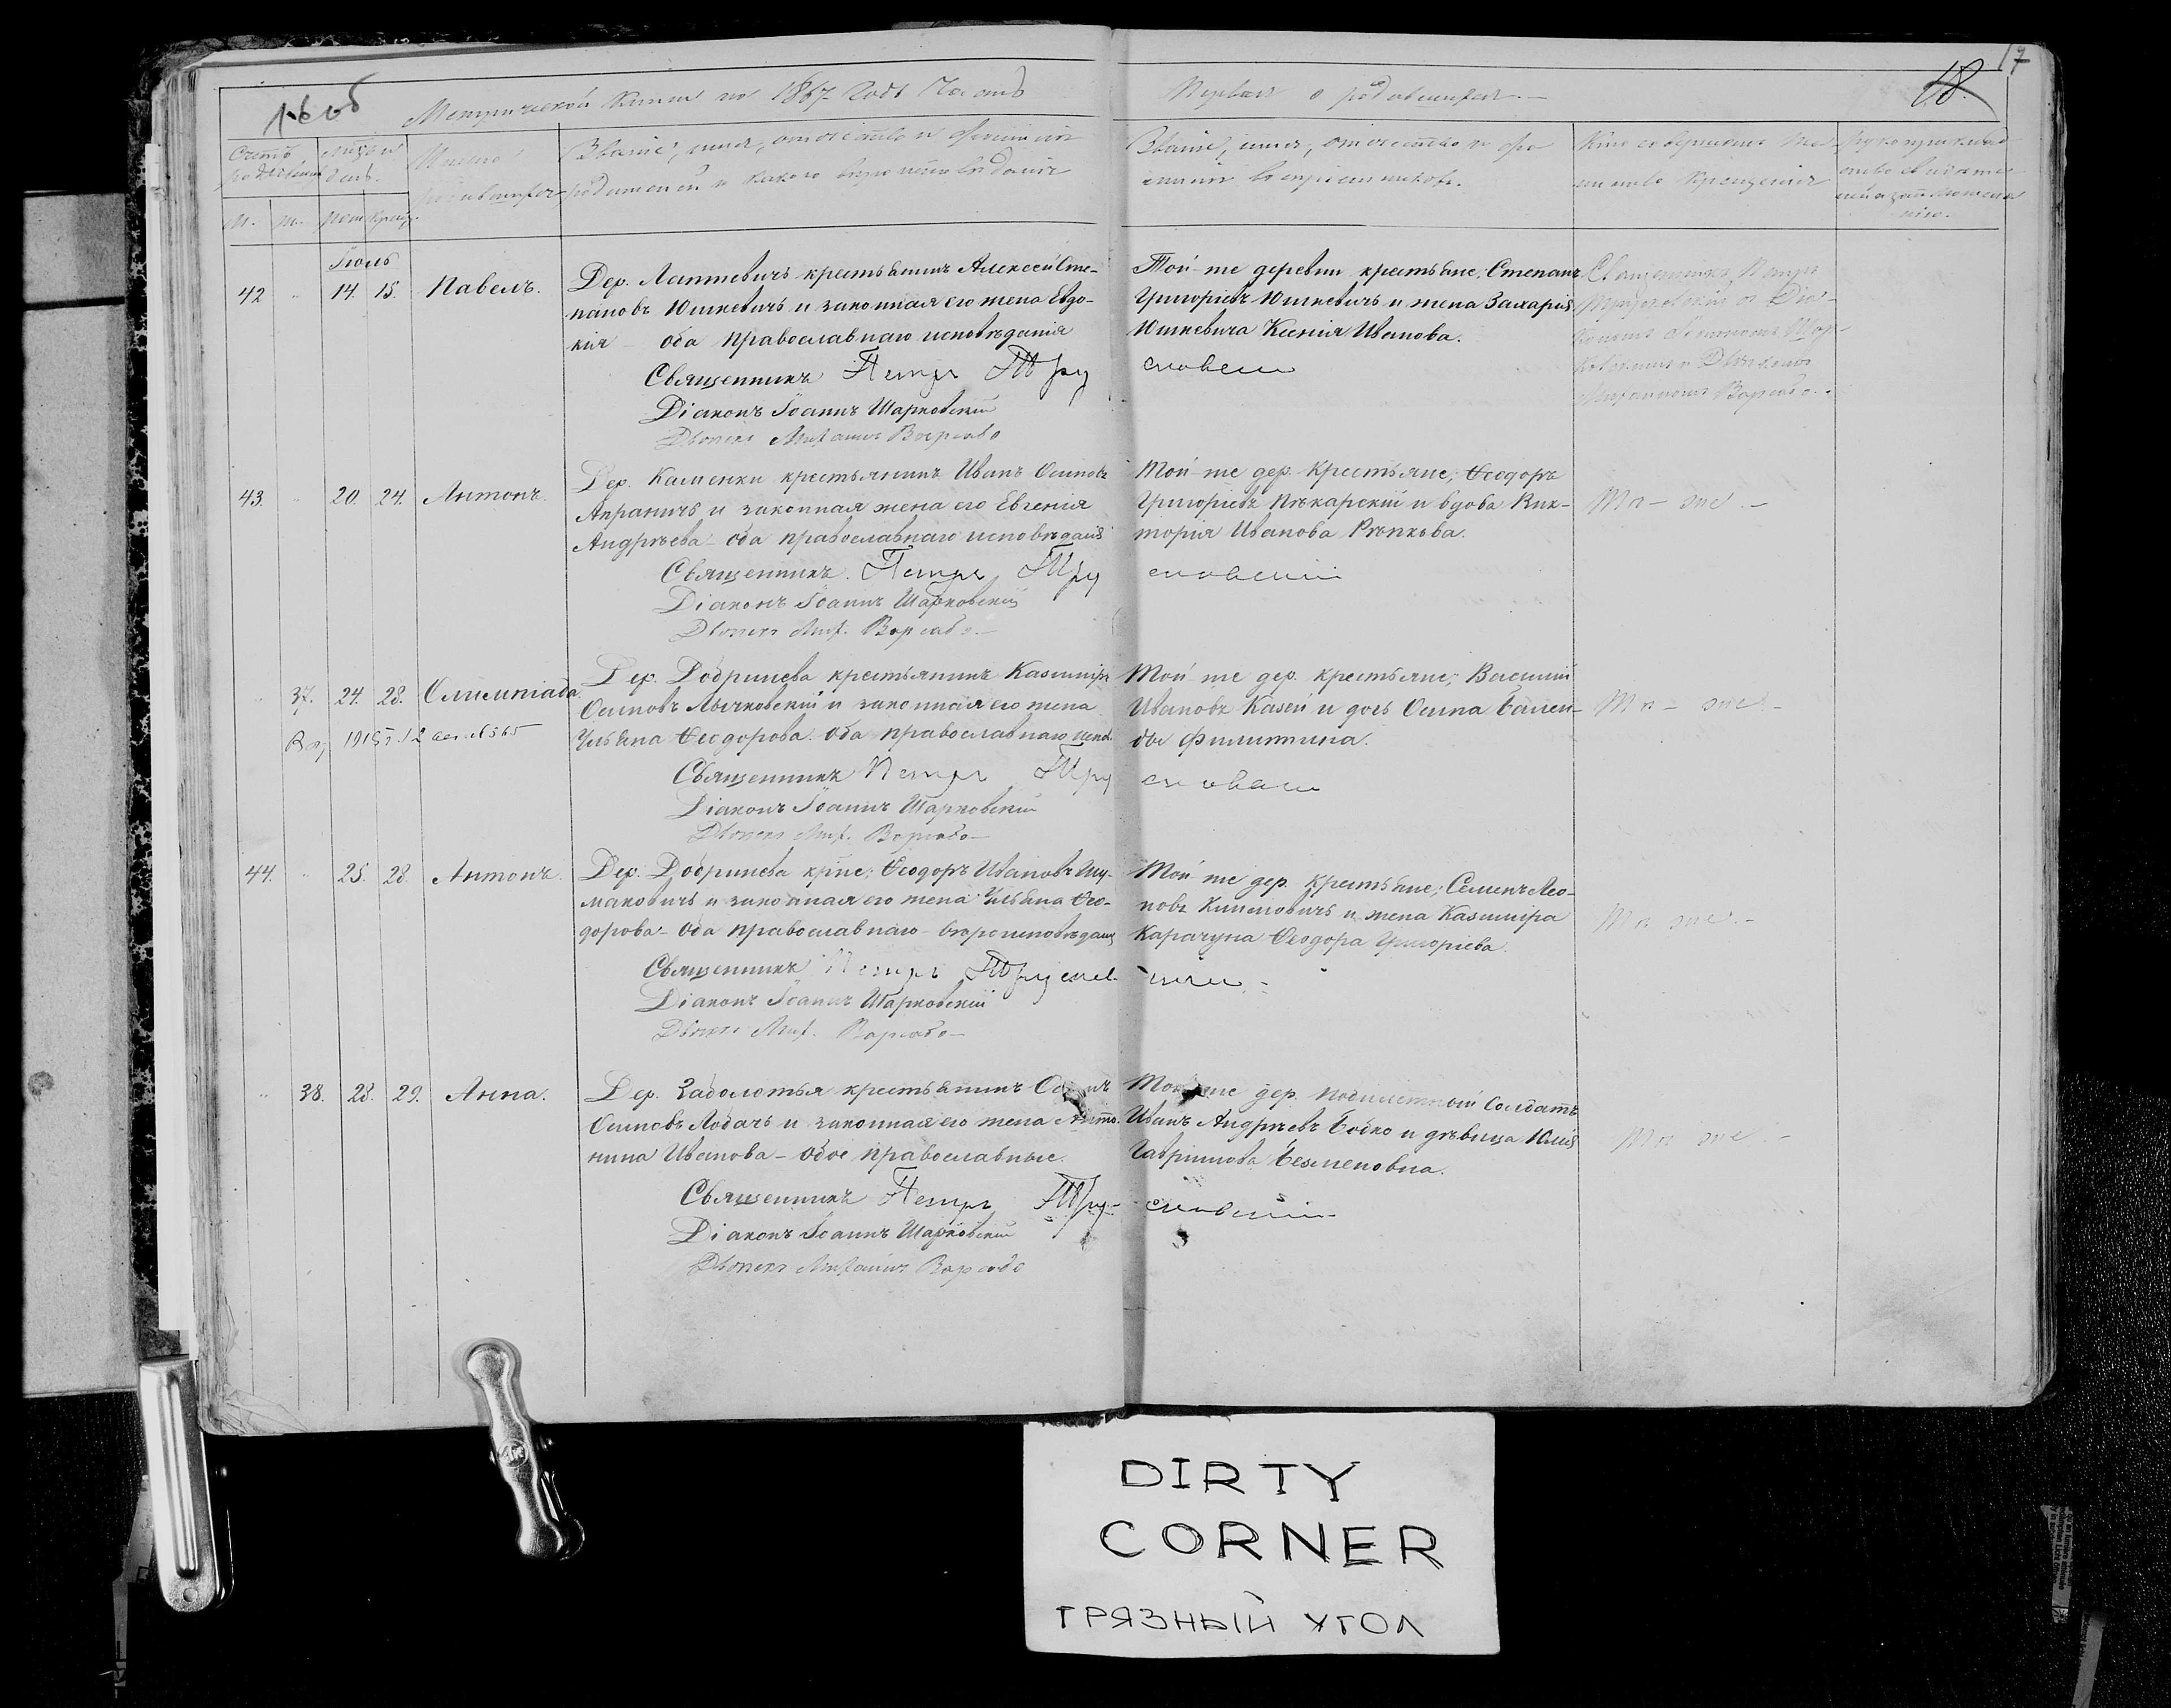 17
18.
Метрической книги на 1867 Годъ Часть Первая о родившихся.
Счетъ родившихся
Мѣсяцъ и день.
Имена родившихся
Званіе, имя, отчество и фамилія
родителей и какого вѣроисповѣданія
Званіе, имя, отчество и фа-
милія воспріемниковъ.
Кто совершалъ та-
инство крещенія
Рукоприклад-
ство свидѣте-
лей
М. Ж. Рож. Крещ.
Іюль
42 14. 15. Павелъ.
Дер. Лаптевичъ крестьянинъ Алексей Сте-
пановъ Юшкевичъ и законная его жена Евдо-
кія - оба православнаго исповѣданія
Священникъ Петръ Трусковскій
Діаконъ Іоаннъ Шарковскій
Дьячекъ Михаилъ Ворсобо
Той-же деревни крестьяне; Степанъ
Григорьевъ Юшкевичъ и жена Захарія
Юшкевича Ксенія Иванова.
Священникъ Петръ
Трусковскій съ Діа-
кономъ Іоанномъ Шар-
ковскимъ и Дьячкомъ
Михаиломъ Ворсобо.
43. 20. 24. Антонъ.
Дер. Каменки крестьянинъ Иванъ Осиповъ
Апраничъ и законная жена его Евгенія
Андрѣева - оба православнаго исповѣданія
Священникъ Петръ Трусковскій
Діаконъ Іоаннъ Шарковскій
Дьячекъ Мих. Ворсобо
Той-же дер. крестьяне; Ѳеодоръ
Григорьевъ Пѣкарскій и вдова Вик-
торія Иванова Рѣпкова.
Тѣ-же.
37. 24. 28. Олимпіада.
1915 г. 12
Дер. Добринева крестьянинъ Казимиръ
Осиповъ Лычковскій и законная его жена
Ульяна Ѳеодорова. оба православнаго испов.
Священникъ Петръ Трусковскій
Діаконъ Іоаннъ Шарковскій
Дьячекъ Мих. Ворсобо
Той же дер. крестьяне; Василій
Ивановъ Казей и дочь Осипа
Филиппина.
Тѣ-же.
44. 25. 28. Антонъ.
Дер. Добринева крпне: Ѳеодоръ Ивановъ Шу-
маковичъ и законная его жена Ульяна Ѳео-
дорова - Оба православнаго вѣроисповѣданія
Священникъ Петръ Трусковскій
Діаконъ Іоаннъ Шарковскій
Дьячекъ Мих. Ворсобо
Той же дер. крестьяне; Семенъ Лео-
новъ Климовичъ и жена Казимира
Карачуна Ѳеодора Григорьева.
Тѣ же.
38. 28. 29. Анна.
Дер. Заболотья крестьянинъ Осипъ
Осиповъ Лобачъ и законная его жена Анто-
нина Иванова - обое православные.
Священникъ Петръ Трусковскій
Діаконъ Іоаннъ Шарковскій
Дьячекъ Михаилъ Ворсобо
Той же дер. солдатъ
Иванъ Андрѣевъ Бойко и дѣвица Юлія
Гаврилова
Тѣ же.
DIRTY
CORNER
ГРЯЗНЫЙ УГОЛ